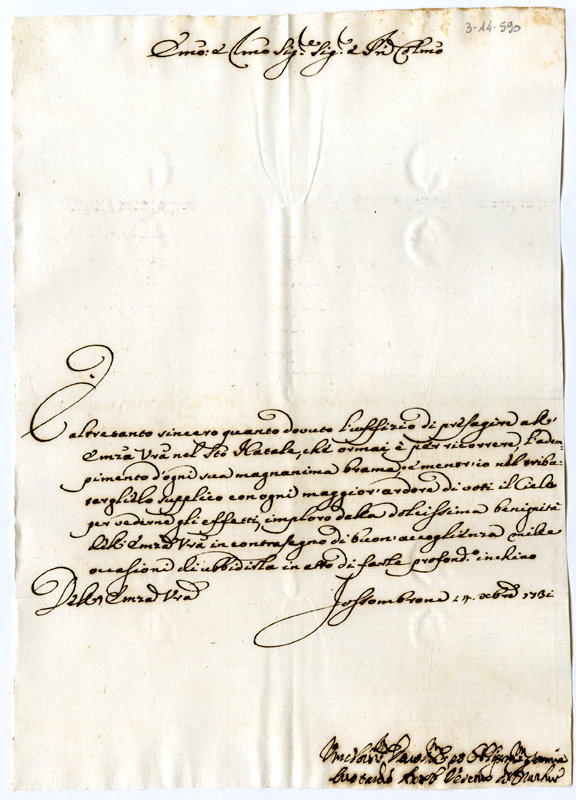 3-14-590
Emo: e Rmo Sig.re Sig.re e Prñ Colmo
È altretanto sincero quanto dovuto l'uffizio di presagire all'
Emza Vrã nel Sto Natale, che ormai è per ricorrere, l'adem=
pimento d'ogni sua magnanima brama, e mentr'io nel tribu=
targlielo supplico con ogni maggior ardore di voti il Cielo
per vederne gli effetti, imploro dalla dolcissima benignità
dell' Emza Vrã in contrasegno di buon accoglienza mille
occasioni di ubbidirla in atto di farle profond.o inchino
Dell' Emza Vrã
Fossombrone 14. Xbre 1731